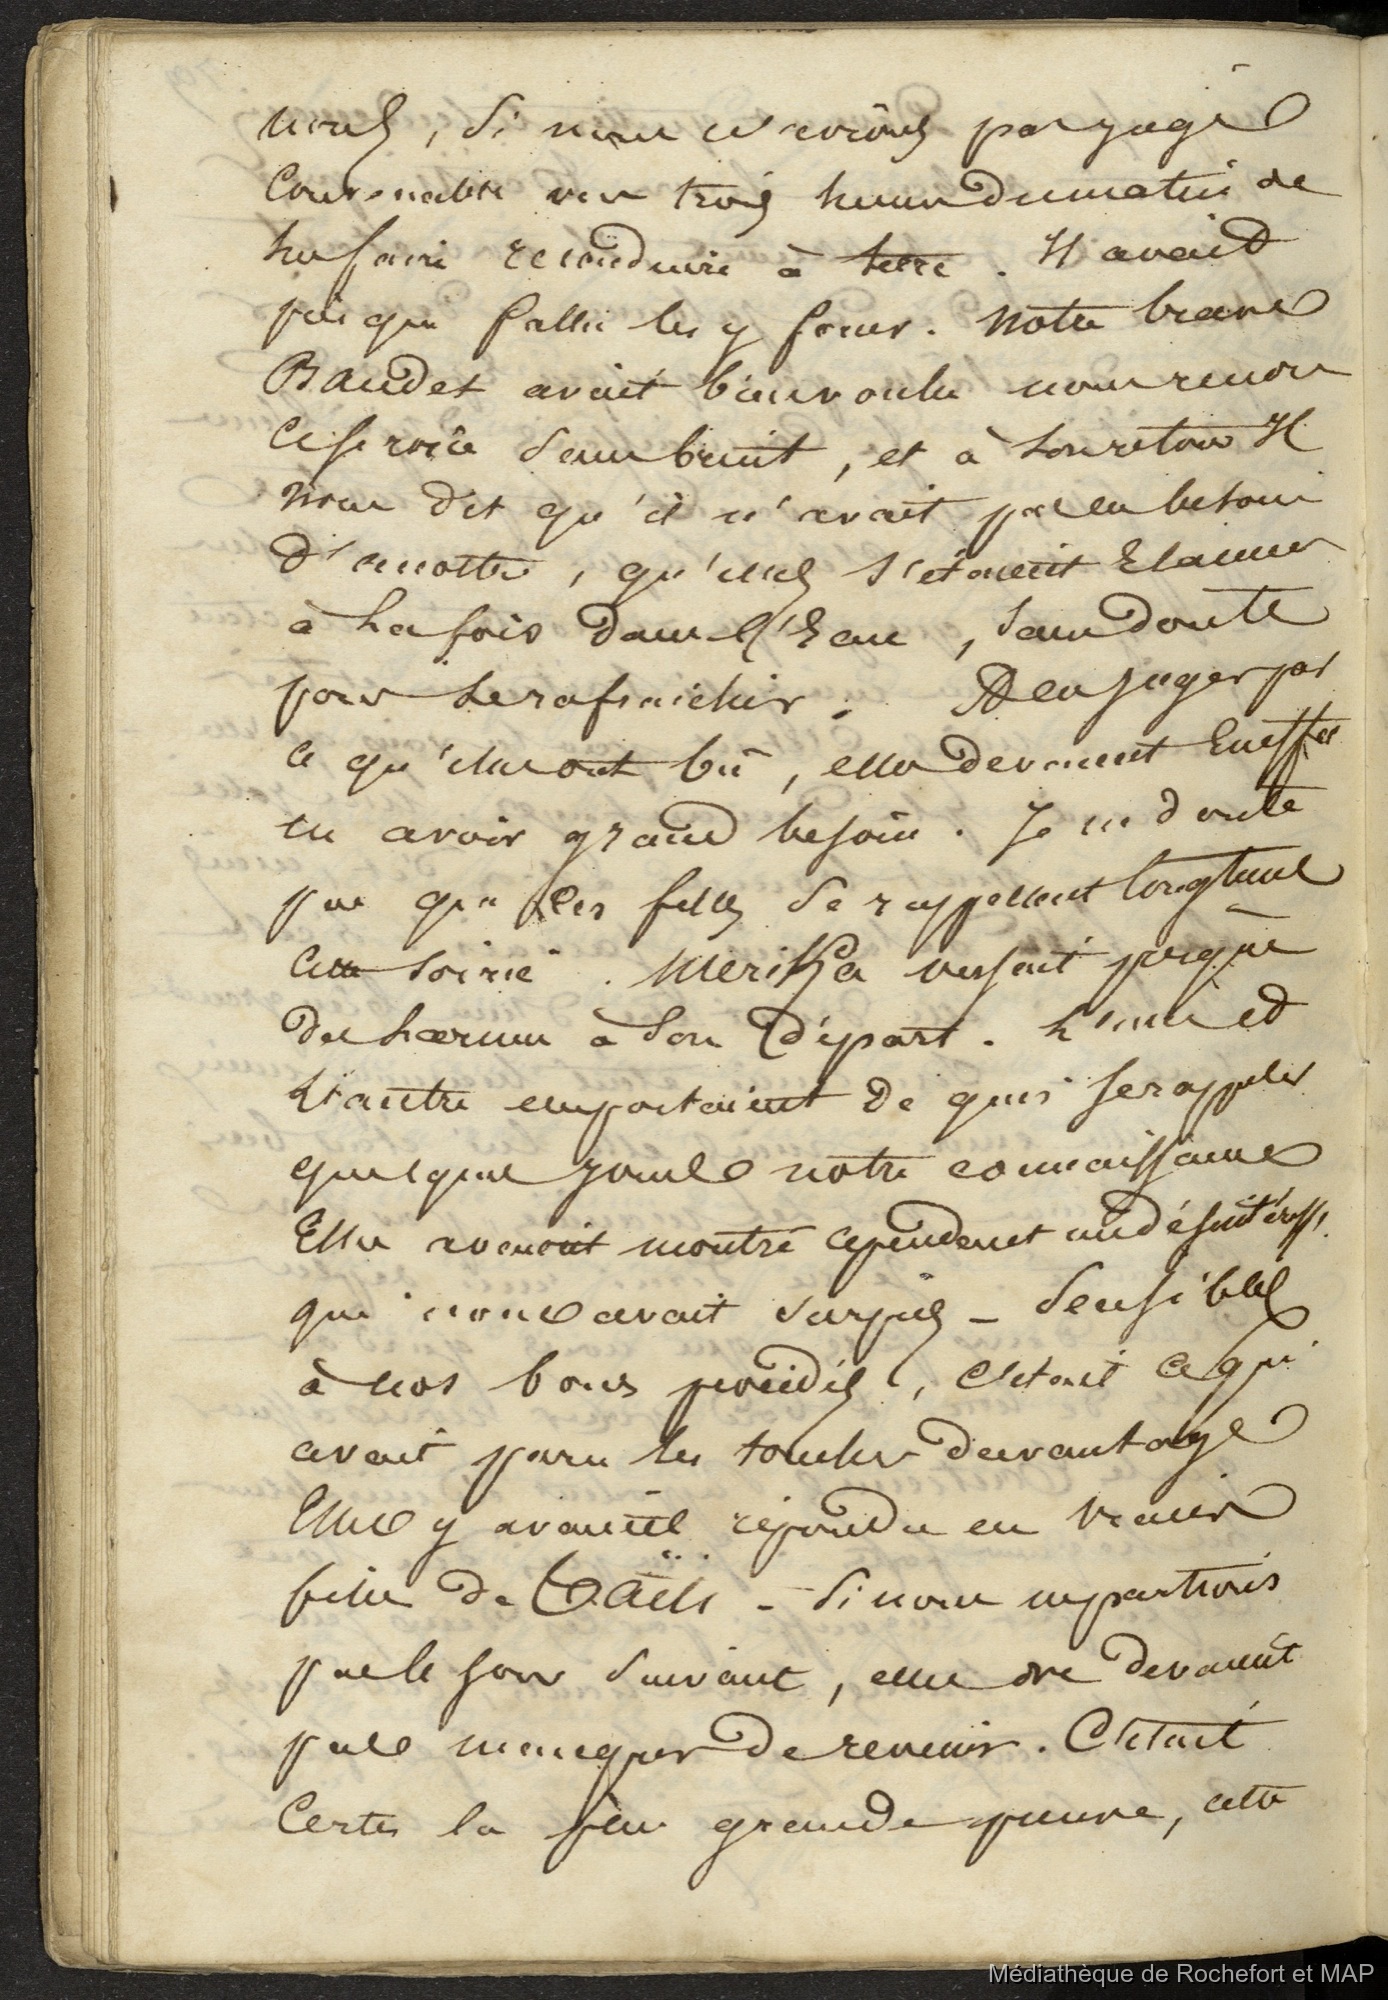 nous, si nous n'avions pas jugé
Convenable vers trois heures du matin de
les faire reconduire à terre. Il avait
presque fallu les y forcer. Notre brave
Baudet avait bien voulu nous rendre
ce service sans bruit, et à son retour Il
nous dit qu'il n'avait pas eu besoin
d'accoster, qu'elles s'étaient Elancées
à la fois dans l'Eau, sans doute
pour se rafraichir. A en juger par
ce qu'elles ont bû, elles devaient En effet
en avoir grand besoin. Je ne doute
pas que ces filles se rappellent longtems
cette soirée. Merika versait presque
des larmes à son départ. L'une et
L'autre emportaient de quoi se rappeler
quelques jours notre connaissance
Elles avaient montré cependant un désintéress.
qui nous avait surpris _ Sensibles
à nos bons procédés, c'était ce qui
avait paru les toucher davantage
Elles y avaient répondu en vraies
filles de Taïti - Si nous ne partions
pas le jour suivant, elles ne devaient
pas manquer de revenir. C'était
Certes la plus grande preuve, cette
Médiathèque de Rochefort et MAP